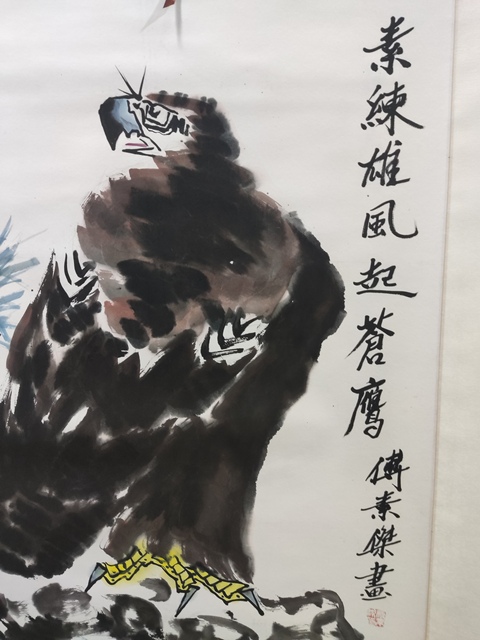 素練雄風起蒼鷹
傅素傑畫